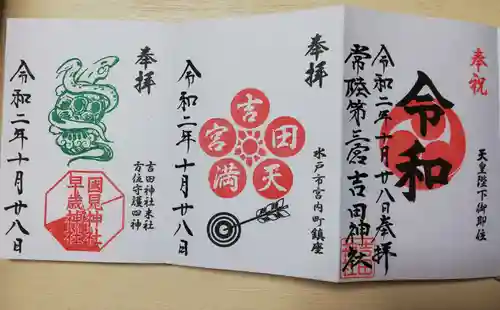 奉祝
令和
天皇陛下御即位
令和二年十月廿八日奉拝
常陸第三宮吉田神社
奉拝
水戸市宮内町鎮座
吉田天満宮
令和二年十月廿八日
奉拝
吉田神社末社
方位守護四神
國見神社
早歳神社
令和二年十月廿八日